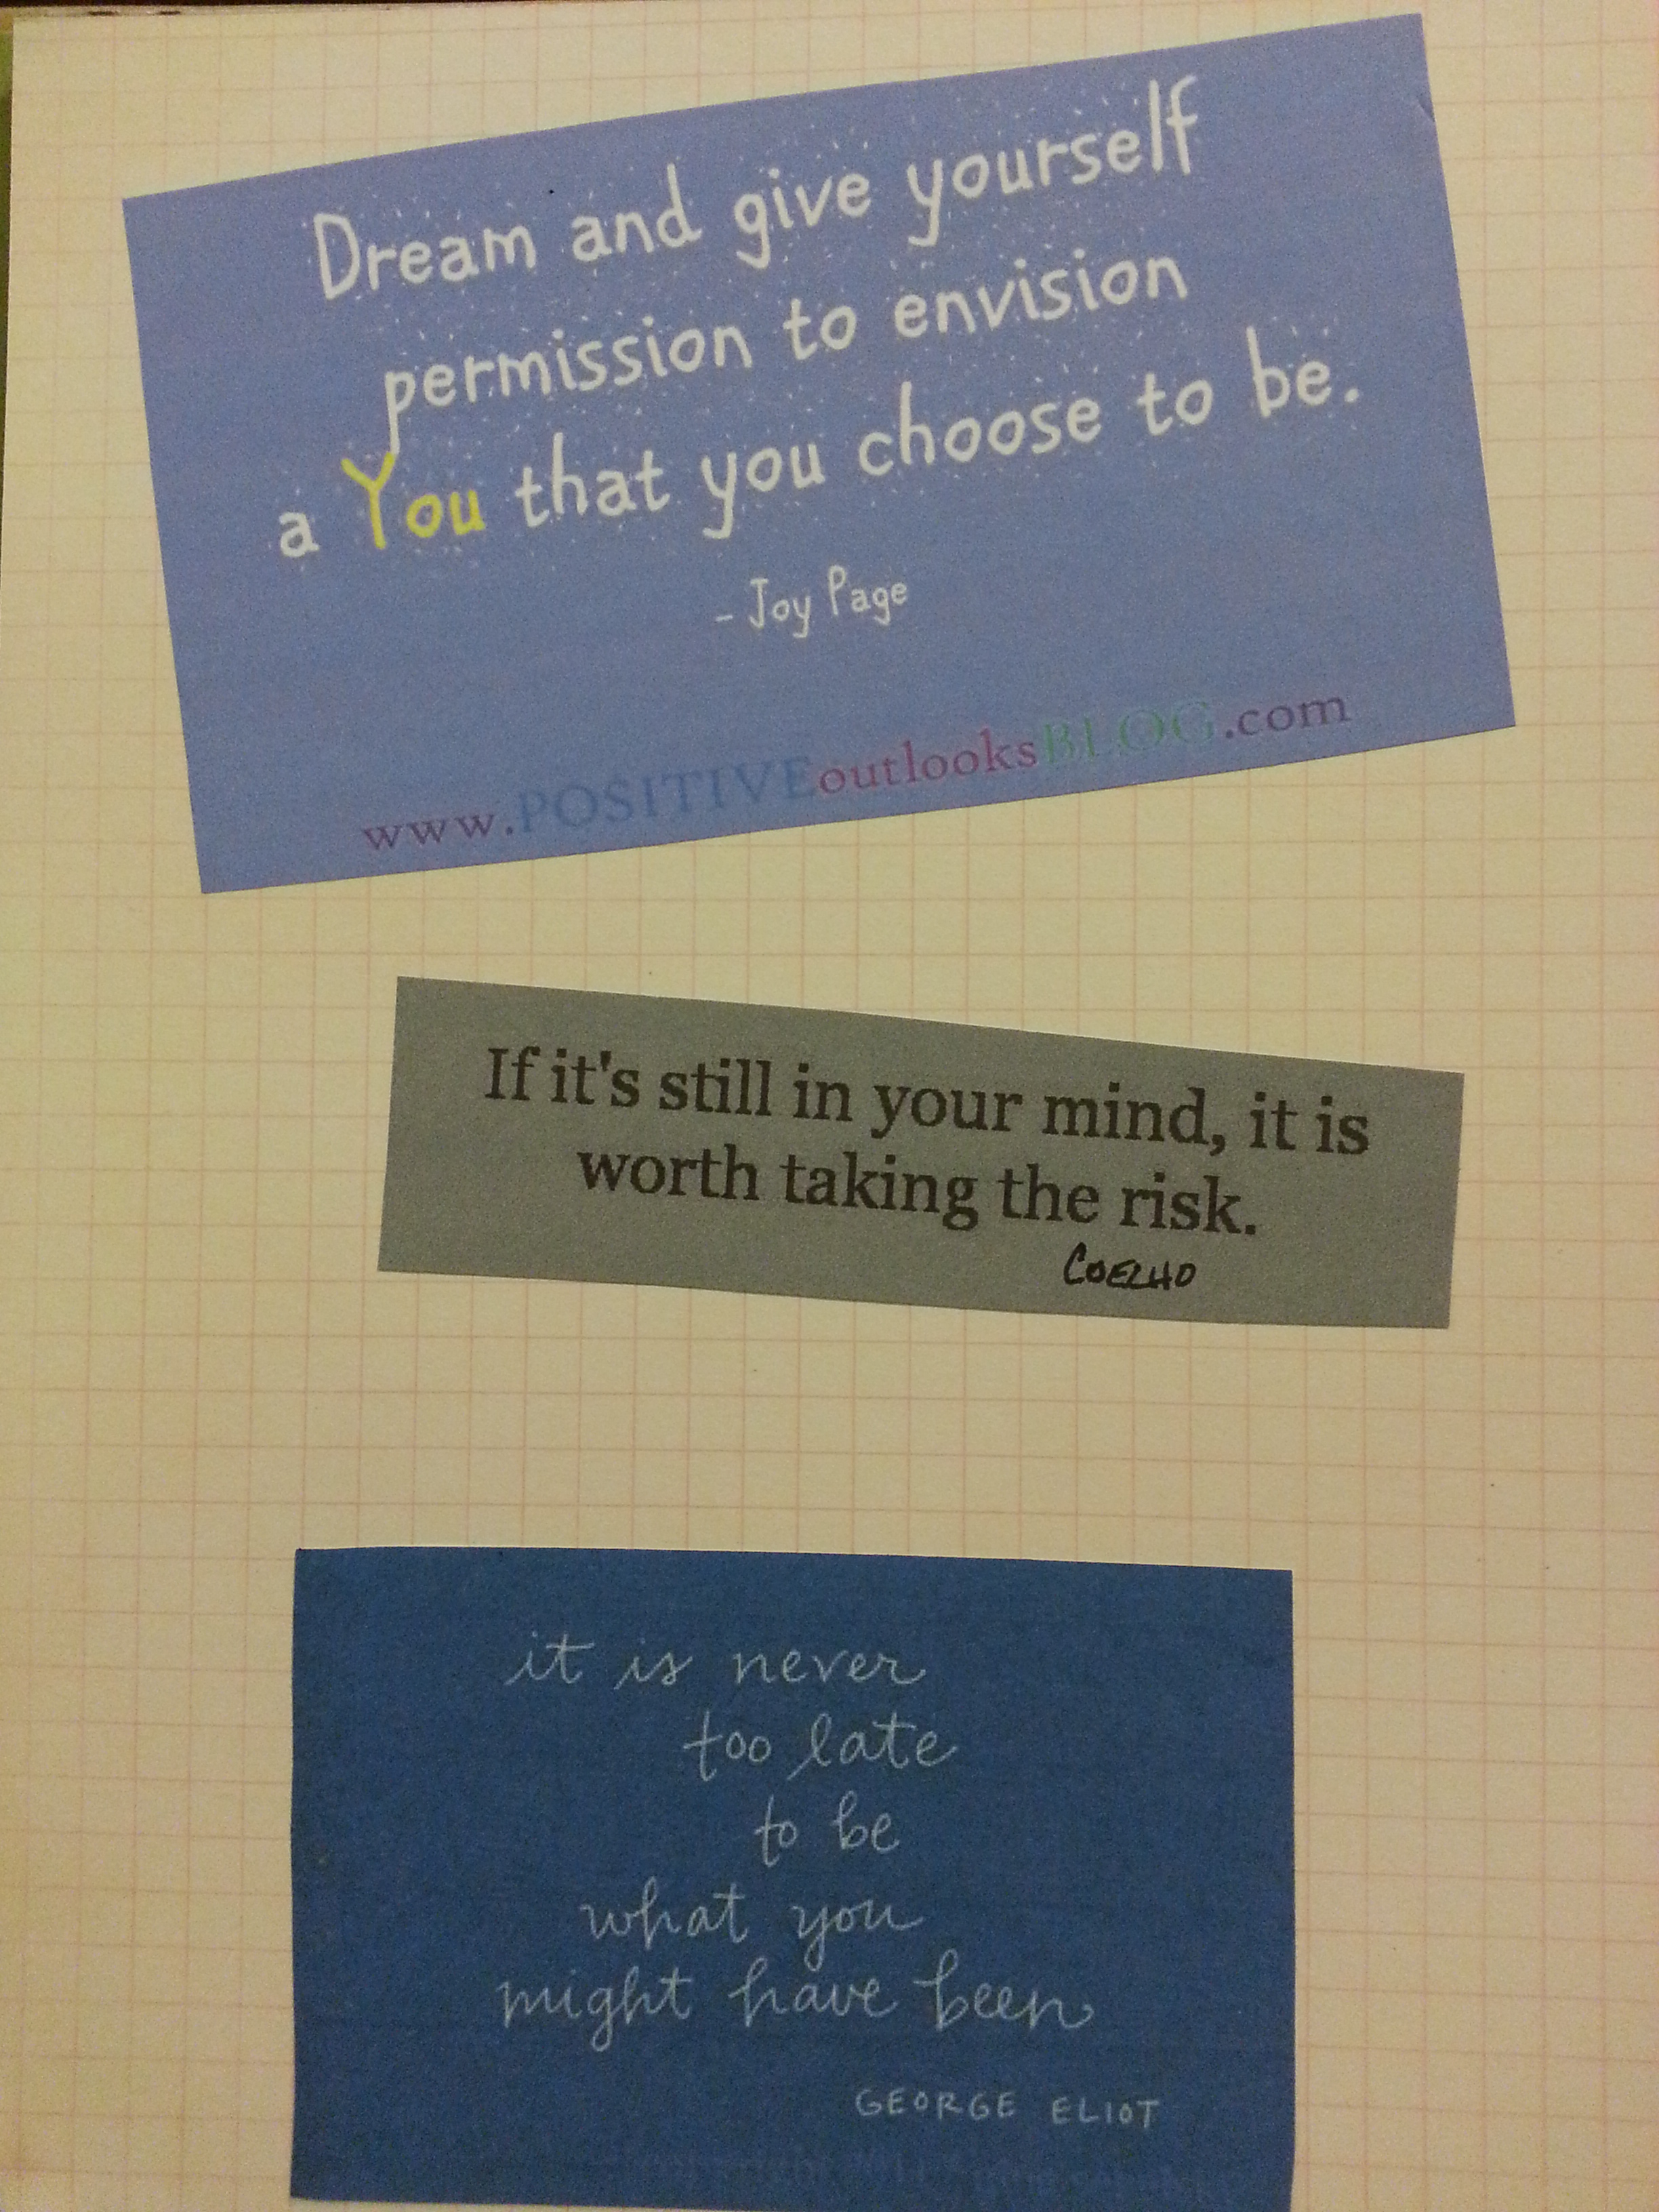 Dream and give yourself
permission to envision
a You that you choose to be.
- Joy Page
www.POSITIVEoutlooksBLOG.com
If it's still in your mind, it is
worth taking the risk.
COELHO
it is never
too late
to be
what you
might have been
GEORGE ELIOT